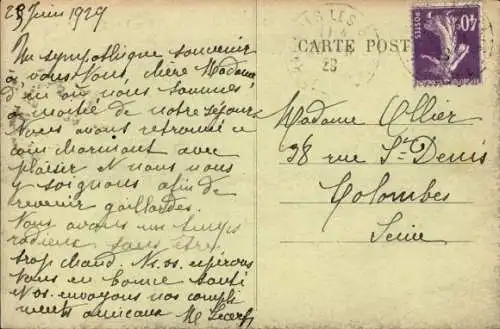 28 Juin 1929
Un sympathique souvenir
à vous tous, chère Madame
d'ici où nous sommes
à moitié de notre séjour
Nous avons retrouvé ce
coin charmant avec
plaisir & nous nous
y soignons afin de
revenir gaillardes.
Nous avons un temps
radieux sans être
trop chaud. Ns. os. espérons
tous en bonne santé
& vos. envoyons nos compli
ments amicaux
CARTE POST
POSTES
40c
28
Madame Ollier
38 rue St-Denis
Colombes
Seine